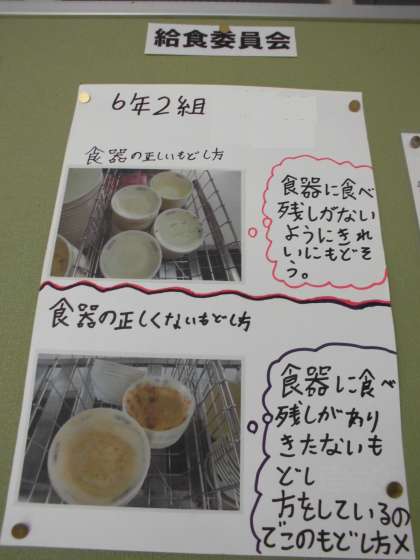 給食委員会
6年2組
食器の正しいもどし方
食器に食べ
残しがない
ようにきれ
いにもどそ
う。
食器の正しくないもどし方
食器に食べ
残しがあり
きたないも
どし
方をしているの
でこのもどし方×